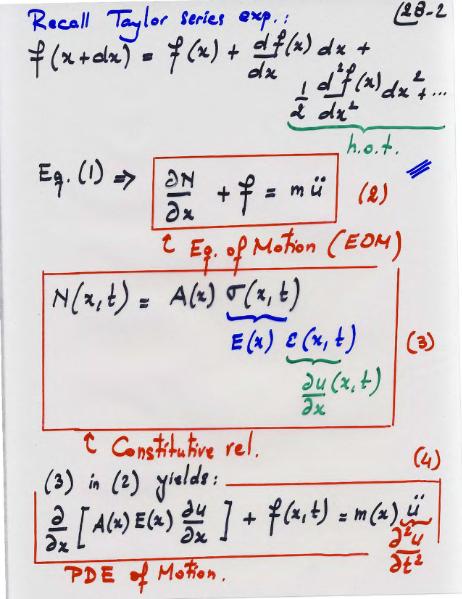 Recall Taylor series exp.: (28-2
f(x+dx) = f(x) + df(x)/dx dx +
1/2 d²f(x)/dx² dx² + ...
h.o.t.
Eq. (1) ⇒ ∂N/∂x + f = m ü (2)
↑ Eq. of Motion (EOM)
N(x,t) = A(x) σ(x,t)
E(x) ε(x,t) (3)
∂u/∂x (x,t)
↑ Constitutive rel.
(3) in (2) yields: (4)
∂/∂x [ A(x) E(x) ∂u/∂x ] + f(x,t) = m(x) ü
∂²u/∂t²
PDE of Motion.